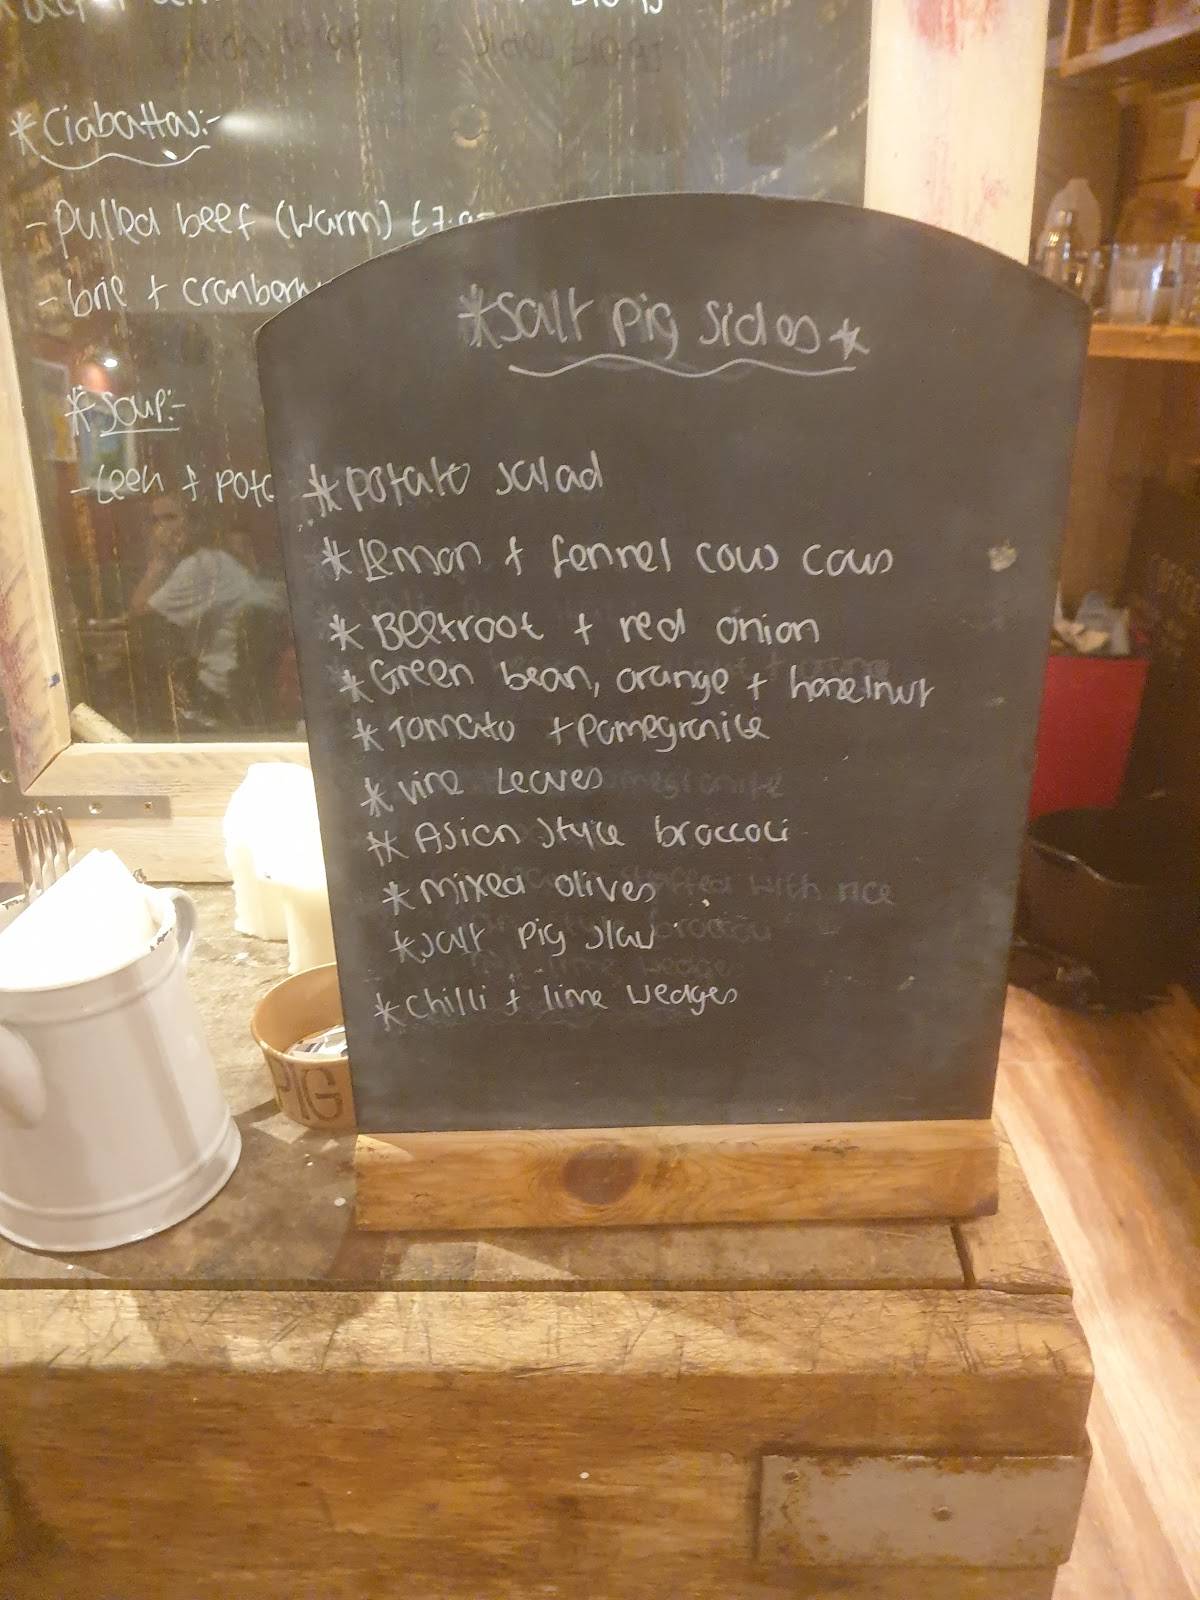 *Ciabattas:-
- Pulled beef (warm)
- brie + cranberry
* Soup:-
- Leek + Pota
*Salt Pig Sides*
*Potato Salad
*Lemon + fennel cous cous
*Beetroot + red onion
*Green bean, orange + hazelnut
*Tomato + Pomegranite
*vine Leaves
*Asian Style broccoli
*Mixed olives
*Salt Pig Slaw
*Chilli + lime wedges
PIG